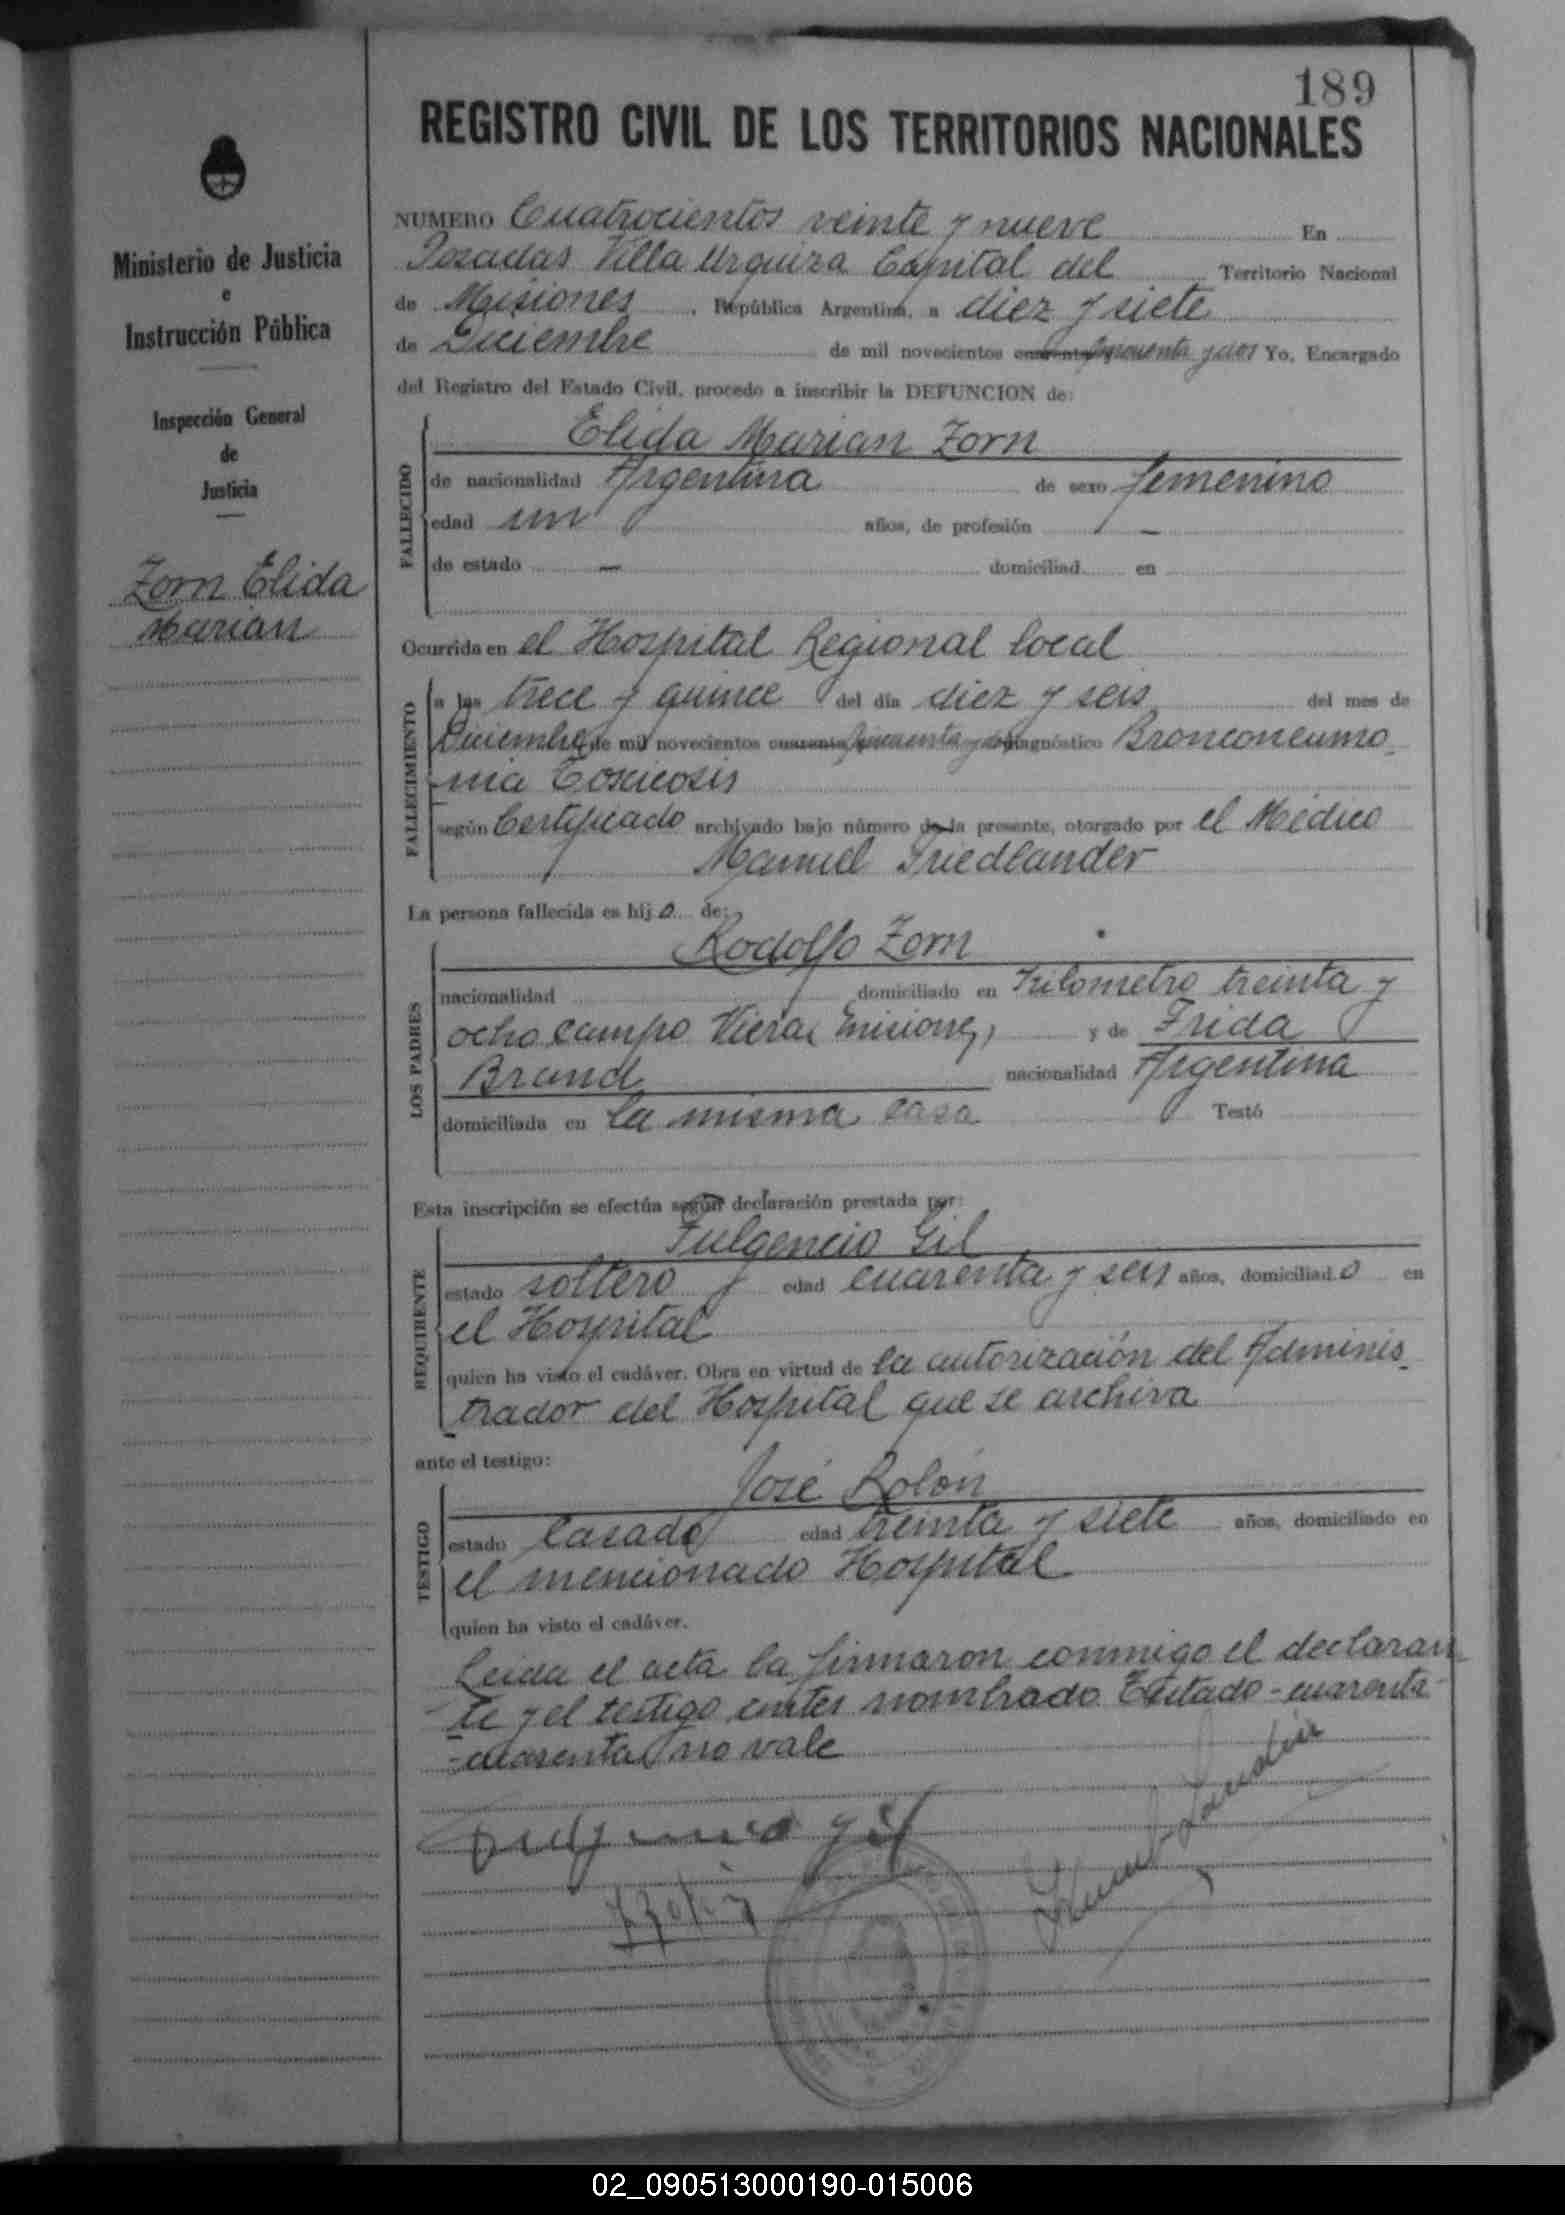 189
REGISTRO CIVIL DE LOS TERRITORIOS NACIONALES
Ministerio de Justicia
e
Instrucción Pública
Inspección General
de
Justicia
Zorn Elida
Marian
NUMERO Cuatrocientos veinte y nueve En
Posadas Villa Urquiza Capital del Territorio Nacional
de Misiones, República Argentina, a diez y siete
de Diciembre de mil novecientos cuarenta cincuenta y dos Yo, Encargado
del Registro del Estado Civil, procedo a inscribir la DEFUNCION de:
FALLECIDO
Elida Marian Zorn
de nacionalidad Argentina de sexo femenino
edad un años, de profesión —
de estado — domiciliad en
Ocurrida en el Hospital Regional local
FALLECIMIENTO
a las trece y quince del día diez y seis del mes de
Diciembre de mil novecientos cuarenta cincuenta y dos diagnóstico Bronconeumo-
nia Toxicosis
según Certificado archivado bajo número de la presente, otorgado por el Médico
Manuel Friedlander
La persona fallecida es hij a de:
LOS PADRES
Rodolfo Zorn
nacionalidad domiciliado en Kilometro treinta y
ocho Campo Viera Misiones, y de Frida
Brand nacionalidad Argentina
domiciliada en la misma casa Testó
Esta inscripción se efectúa según declaración prestada por:
REQUIRENTE
Fulgencio Gil
estado soltero edad cuarenta y seis años, domiciliad o en
el Hospital
quien ha visto el cadáver. Obra en virtud de la autorización del Adminis-
trador del Hospital que se archiva
ante el testigo:
TESTIGO
José Rolón
estado Casado edad treinta y siete años, domiciliado en
el mencionado Hospital
quien ha visto el cadáver.
Leida el acta la firmaron conmigo el declaran
te y el testigo antes nombrado Testado - cuarenta -
- cuarenta no vale
Fulgencio Gil
02_090513000190-015006